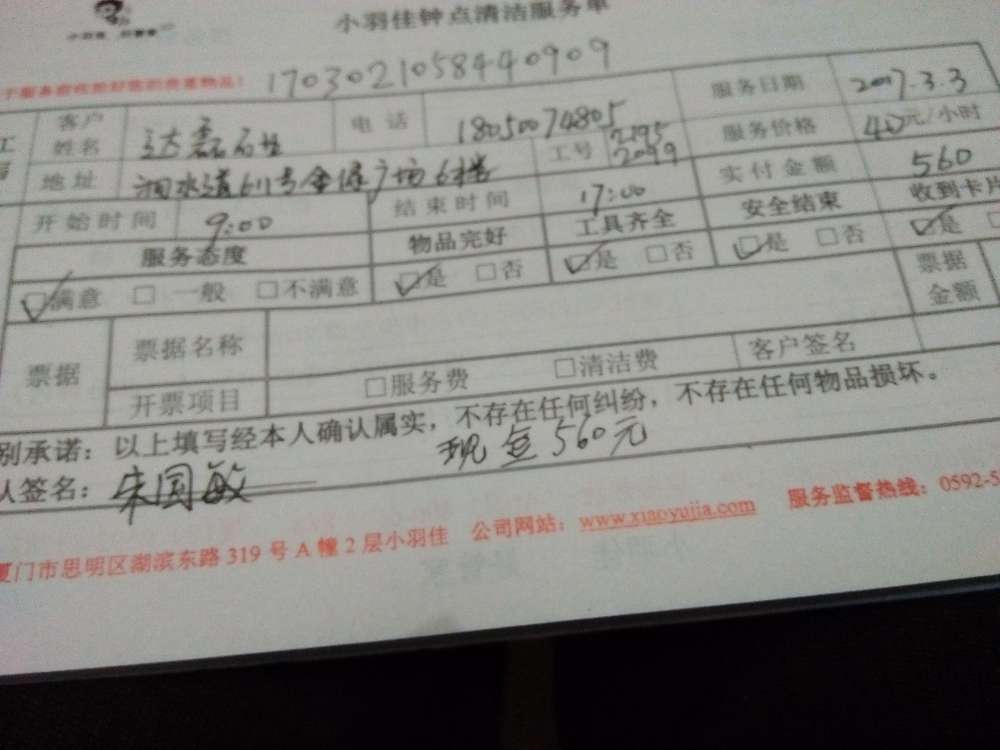 小羽佳钟点清洁服务单
小羽佳
1703021058440909
客户姓名 电话 18050074805 服务日期 2017.3.3
地址 工号 2195 2099 服务价格 40元/小时
开始时间 9:00 结束时间 17:00 实付金额 560
服务态度 物品完好 工具齐全 安全结束 收到卡片
满意 一般 不满意 是 否 是 否 是 否 是
票据 票据名称 票据金额
开票项目 服务费 清洁费 客户签名
别承诺：以上填写经本人确认属实，不存在任何纠纷，不存在任何物品损坏。
认签名：朱国敏 现 560元
厦门市思明区湖滨东路 319 号 A 幢 2 层小羽佳 公司网站：www.xiaoyujia.com 服务监督热线：0592-5